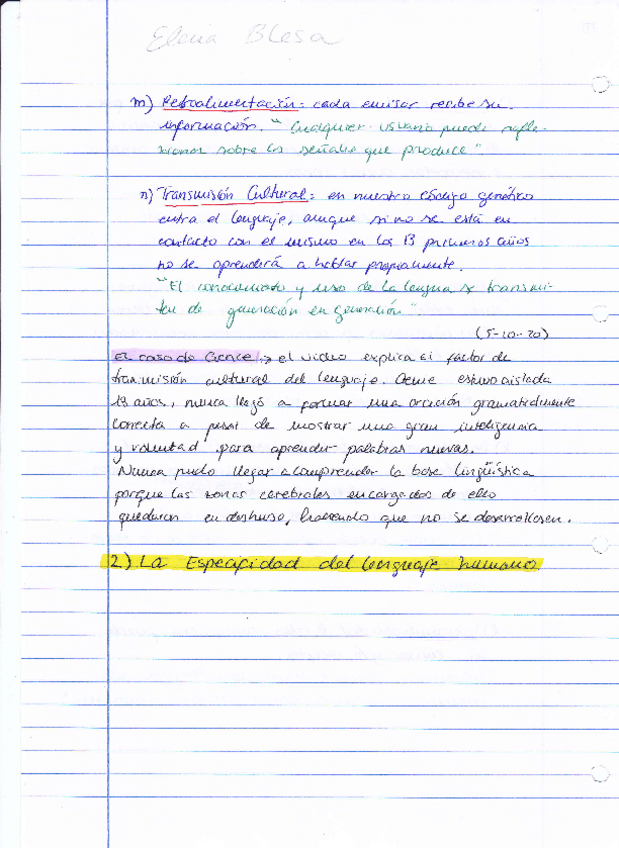 Elena Blesa
m) Retroalimentación: cada emisor recibe su
información. "Cualquier usuario puede refle-
xionar sobre las señales que produce"
n) Transmisión Cultural: en nuestro código genético
entra el lenguaje, aunque si no se está en
contacto con el mismo en los 13 primeros años
no se aprenderá a hablar propiamente.
"El conocimiento y uso de la lengua se transmi-
ten de generación en generación".
(5-10-20)
El caso de Genie → el video explica el factor de
transmisión cultural del lenguaje. Genie estuvo aislada
13 años, nunca llegó a formar una oración gramaticalmente
correcta a pesar de mostrar una gran inteligencia
y voluntad para aprender palabras nuevas.
Nunca pudo llegar a comprender la base lingüística
porque las zonas cerebrales encargadas de ello
quedaron en deshuso, haciendo que no se desarrollasen.
2) La Especifidad del lenguaje humano